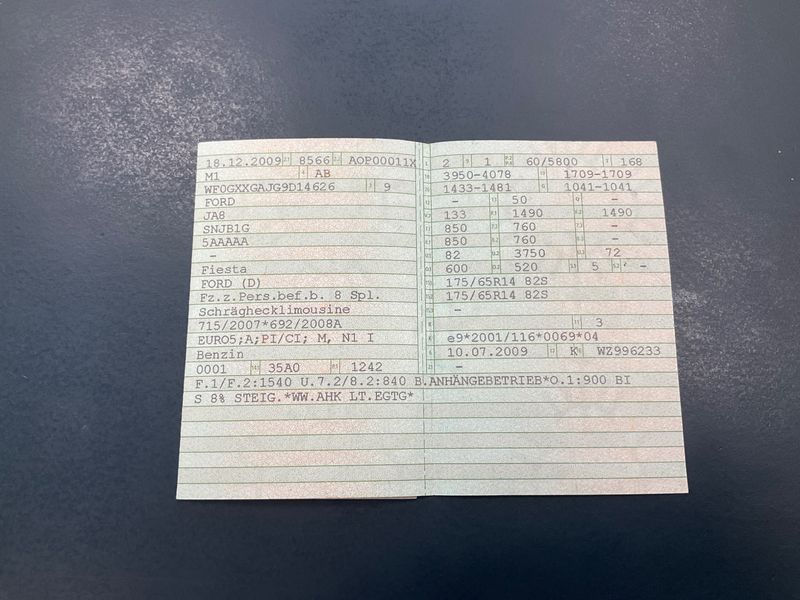 18.12.2009 8566 AOP00011X
M1 AB
WF0GXXGAJG9D14626 9
FORD
JA8
SNJB1G
5AAAAA
-
Fiesta
FORD (D)
Fz.z.Pers.bef.b. 8 Spl.
Schräghecklimousine
715/2007*692/2008A
EURO5;A;PI/CI; M, N1 I
Benzin
0001 35A0 1242
2 1 60/5800 168
3950-4078 1709-1709
1433-1481 1041-1041
- 50 -
133 1490 1490
850 760 -
850 760 -
82 3750 72
600 520 5 -
175/65R14 82S
175/65R14 82S
-
3
e9*2001/116*0069*04
10.07.2009 K WZ996233
-
F.1/F.2:1540 U.7.2/8.2:840 B.ANHÄNGEBETRIEB*O.1:900 BI
S 8% STEIG.*WW.AHK LT.EGTG*